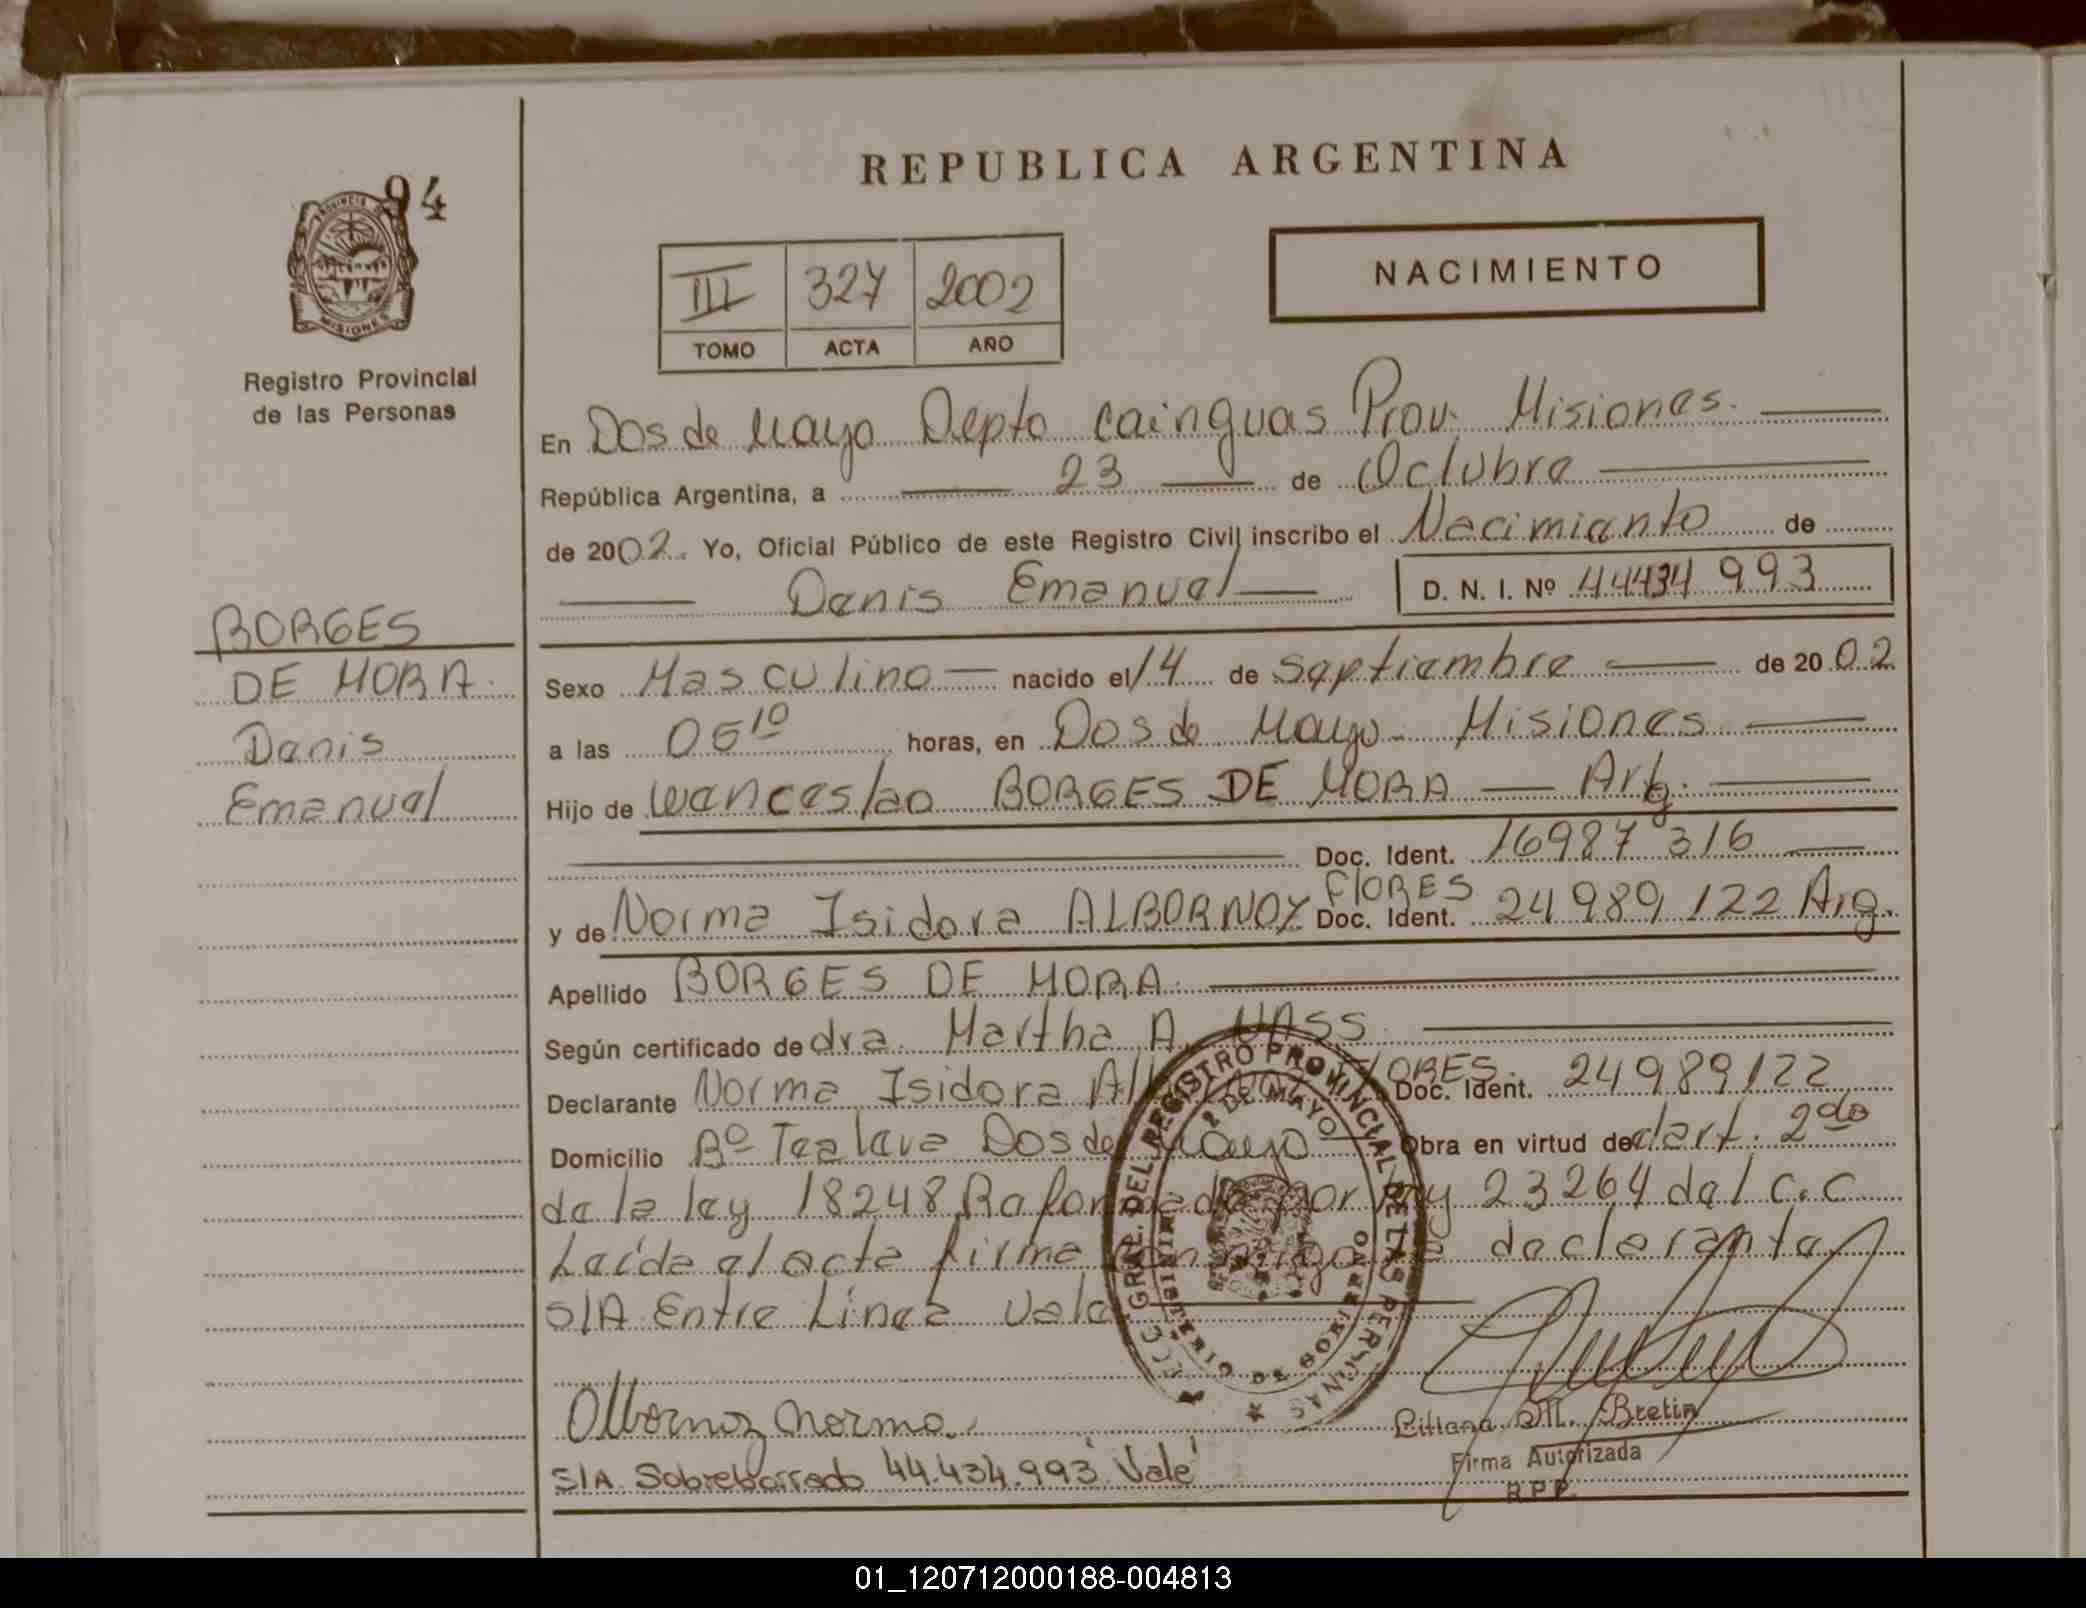 94
PROVINCIA DE
MISIONES
Registro Provincial
de las Personas
REPUBLICA ARGENTINA
NACIMIENTO
III 327 2002
TOMO ACTA AÑO
En Dos de Mayo Depto Cainguas Prov. Misiones.
República Argentina, a 23 de Octubre
de 2002. Yo, Oficial Público de este Registro Civil inscribo el Nacimiento de
Denis Emanuel D. N. I. Nº 44434993
BORGES
DE MORA.
Denis
Emanuel
Sexo Masculino nacido el 14 de Septiembre de 2002
a las 05 10 horas, en Dos de Mayo - Misiones
Hijo de Wenceslao BORGES DE MORA Arg.
Doc. Ident. 16987316
FLORES
y de Norma Isidora ALBORNOZ Doc. Ident. 24989122 Arg.
Apellido BORGES DE MORA.
Según certificado de dra. Martha A.
Declarante Norma Isidora Albornoz FLORES. Doc. Ident. 24989122
Domicilio Bº Tealera Dos de Mayo Obra en virtud de dart. 2do
de la ley 18248 Reformada por ley 23264 del C.C
Leída el acta firma conmigo la declarante
S/A Entre Línea Vale
DEL REGISTRO PROVINCIAL DE LAS PERSONAS
2 DE MAYO
MINISTERIO DE GOBIERNO
Albornoz Norma.
Liliana M. Bretin
Firma Autorizada
R.P.P.
S/A. Sobreborrado 44.434.993 "Vale"
01_120712000188-004813